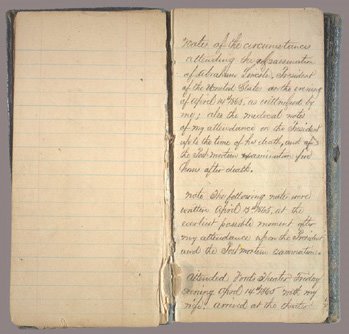 Notes of the circumstances
attending the assassination
of Abraham Lincoln, President
of the United States on the evening
of April 14th 1865, as witnessed by
my; also the medical notes
of my attendance on the President
up to the time of his death, and of
the Post mortem examination five
hours after death.
note The following notes were
written April 15th 1865, at the
earliest possible moment after
my attendance upon the President
and the Post mortem examination.
Attended Fords Theater Friday
evening April 14th 1865 with my
wife. arrived at the theater